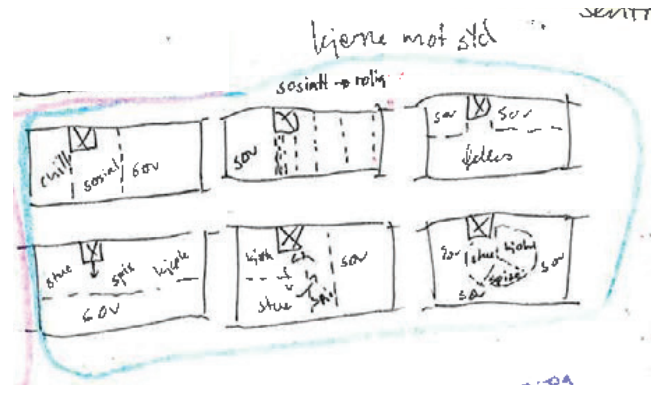 kjerne mot syd
sosialt → rolig
chill sosial sov
sov
sov sov
felles
stue spis kjøkk
sov
kjøk sov
stue spis
sov stue kjøkk sov
spis
sov